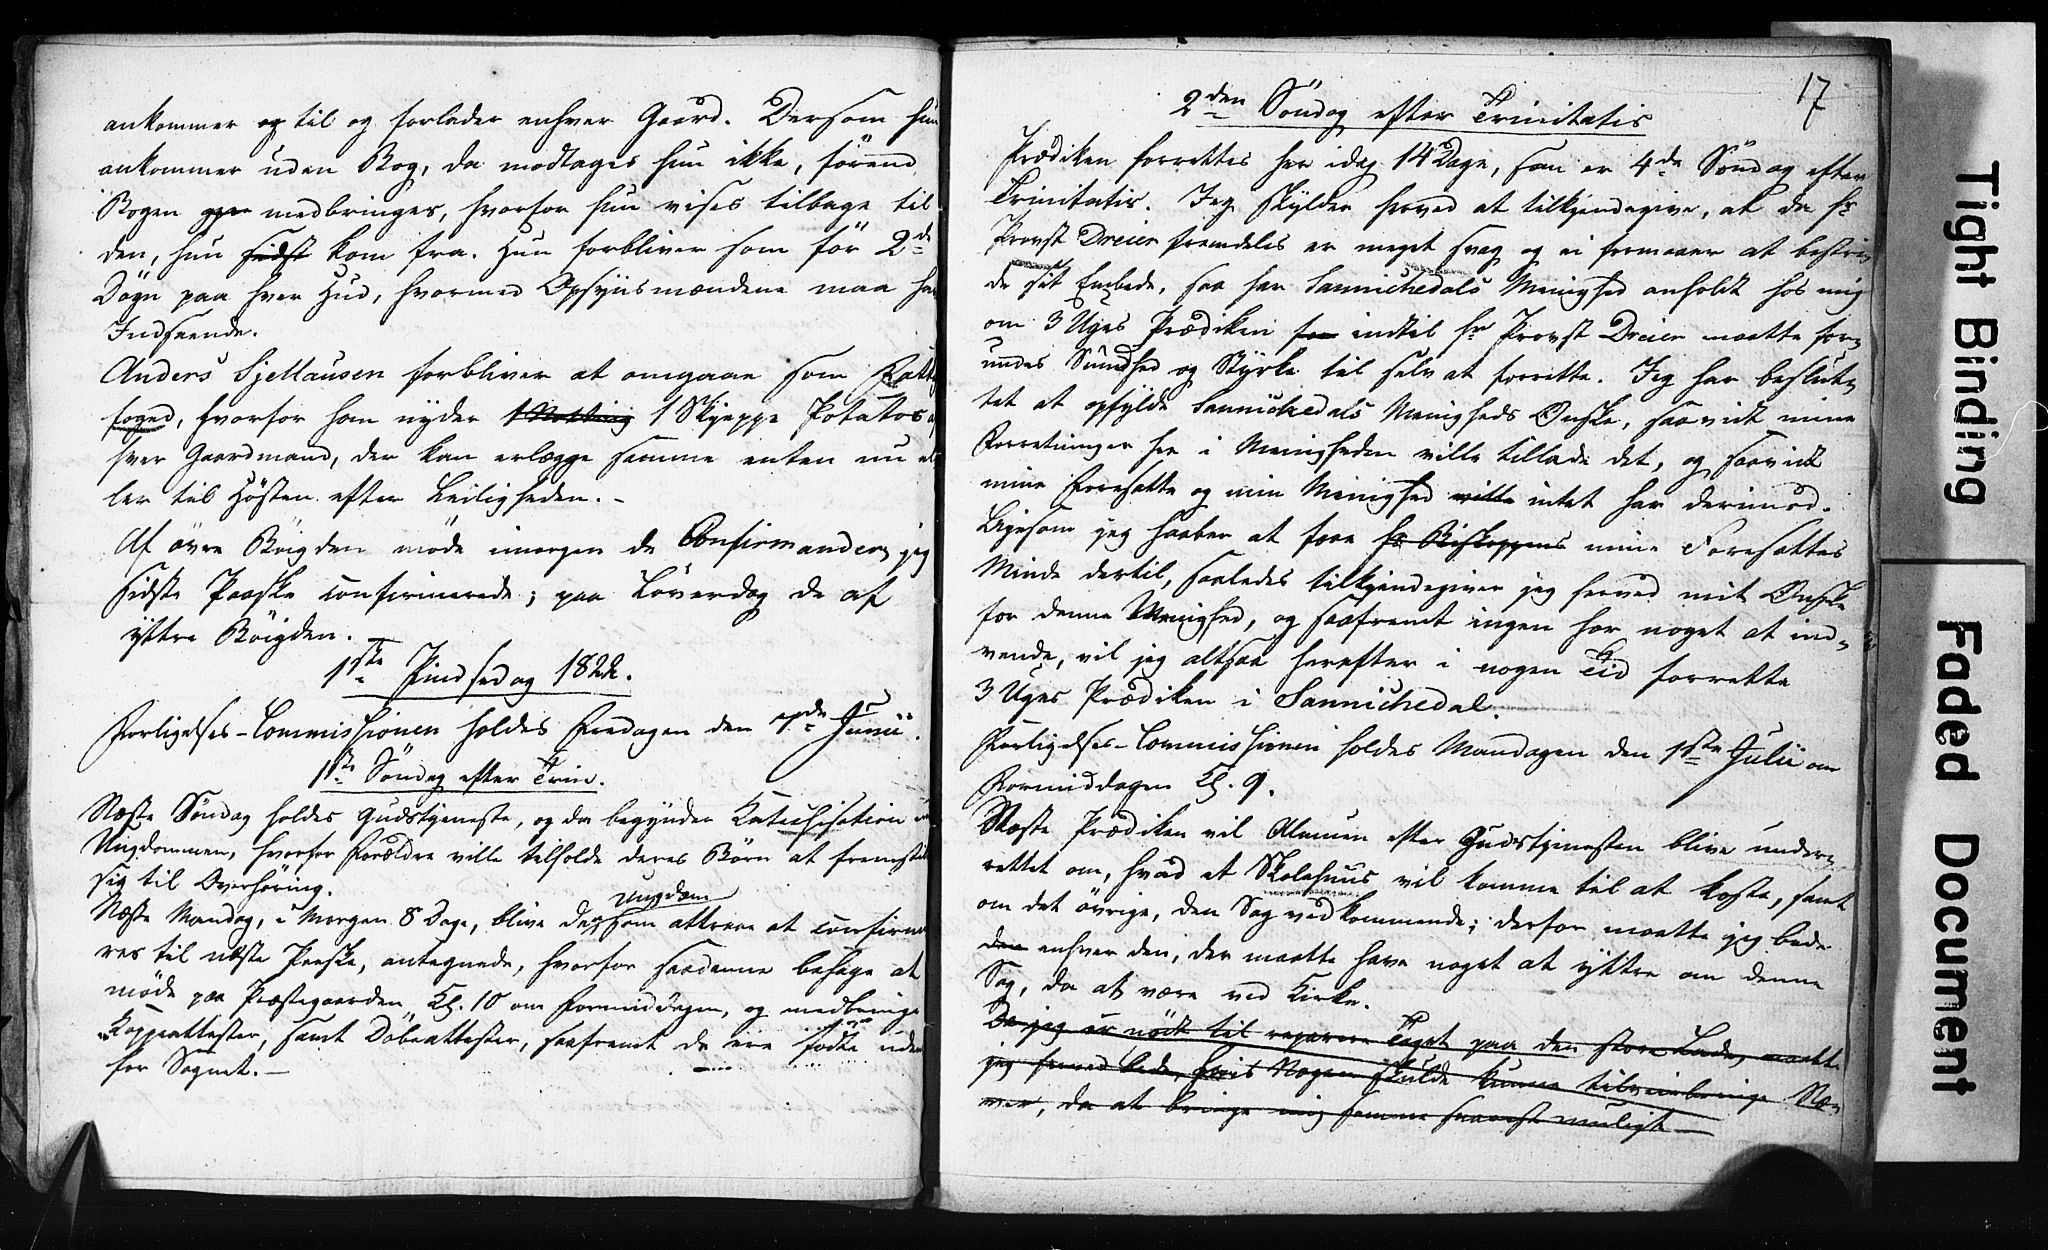 ankommer og til og forlader enhver Gaard. Dersom hun
ankommer uden Bog, da modtages hun ikke, förend
Bogen medbringes, hvorfor hun vises tilbage til
den, hun sidst kom fra. Hun forbliver som för 2de
Dögn paa hver Hud, hvormed Opsynsmændene maa have
Indseende.
Anders Sjellausen forbliver at omgaae som
foged, hvorfor han nyder 1 Skjeppe Potatos af
hver Gaardmand, der kan erlægge samme enten nu el
ler til Hösten efter Leiligheden. -
Af övre Böigden möde imorgen de Confirmander, jeg
sidste Paaske confirmerede; paa Löverdag de af
yttre Böigden.
1ste Pindsedag 1822.
Forligelses-Commissionen holdes Fredagen den 7de Junii.
1ste Söndag efter Trin.
Næste Söndag holdes Gudstjeneste, og da begynder Katechisation
Ungdommen, hvorfor Forældre ville tilholde deres Börn at fremstille
sig til Overhöring.
Ungdom
Næste Mandag, i Morgen 8 Dage, blive den, som attraae at confirme
res til næste Paaske, antegnede, hvorfor saadanne behage at
möde paa Præstegaarden Kl. 10 om Formiddagen, og medbringe
Koppeattester, samt Döbeattester, saafremt de ere födte uden
for Sognet. -
17
2den Söndag efter Trinitatis
Prædiken forrettes her idag 14 Dage, som er 4de Söndag efter
Trinitatis. Jeg skylder herved at tilkjendegive, at da Hr
Provst Dreier fremdeles er meget svag og ei formaaer at bestri
de sit Embede, saa har Sannichedals Menighed anholdt hos mig
om 3 Uges Prædiken indtil Hr Provst Dreier maatte for
undes Sundhed og Styrke til selv at forrette. Jeg har beslut
tet at opfylde Sannichedals Menigheds Önske, saavidt mine
Forretninger her i Menigheden ville tillade det, og saavidt
mine Foresatte og min Menighed ville intet har derimod.
Ligesom jeg haaber at faae Hr Biskoppens mine Foresattes
Minde dertil, saaledes tilkjendegiver jeg herved mit Önske
for denne Menighed, og saafremt ingen har noget at ind-
vende, vil jeg altsaa herefter i nogen Tid forrette
3 Uges Prædiken i Sannichedal.
Forligelses-Commissionen holdes Mandagen den 1ste Julii om
Formiddagen Kl. 9.
Næste Prædiken vil Almuen efter Gudstjenesten blive under-
rettet om, hvad et Skolehuus vil komme til at koste, samt
om det övrige, den Sag vedkommende; derfor maatte jeg bede
den enhver den, der maatte have noget at yttre om denne
Sag, da at være ved Kirke.
Da jeg er nödt til reparere Taget paa den store Lade, maatte
jeg herved bede, hvis Nogen skulde kunne tilveiebringe Næ-
ver, da at bringe mig samme snarest muligt -
Tight Binding
Faded Document